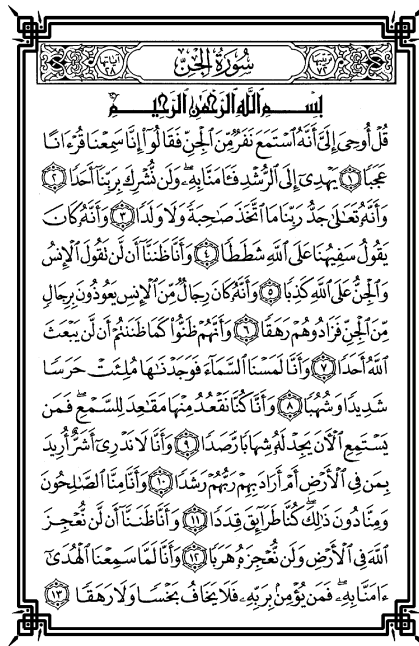 ترتيبها ٧٢ سُورَةُ الجِنِّ آياتها ٢٨
بِسْمِ اللَّهِ الرَّحْمَٰنِ الرَّحِيمِ
قُلْ أُوحِىَ إِلَىَّ أَنَّهُ ٱسْتَمَعَ نَفَرٌ مِّنَ ٱلْجِنِّ فَقَالُوٓا۟ إِنَّا سَمِعْنَا قُرْءَانًا
عَجَبًا ١ يَهْدِىٓ إِلَى ٱلرُّشْدِ فَـَٔامَنَّا بِهِۦ ۖ وَلَن نُّشْرِكَ بِرَبِّنَآ أَحَدًا ٢
وَأَنَّهُۥ تَعَٰلَىٰ جَدُّ رَبِّنَا مَا ٱتَّخَذَ صَٰحِبَةً وَلَا وَلَدًا ٣ وَأَنَّهُۥ كَانَ
يَقُولُ سَفِيهُنَا عَلَى ٱللَّهِ شَطَطًا ٤ وَأَنَّا ظَنَنَّآ أَن لَّن تَقُولَ ٱلْإِنسُ
وَٱلْجِنُّ عَلَى ٱللَّهِ كَذِبًا ٥ وَأَنَّهُۥ كَانَ رِجَالٌ مِّنَ ٱلْإِنسِ يَعُوذُونَ بِرِجَالٍ
مِّنَ ٱلْجِنِّ فَزَادُوهُمْ رَهَقًا ٦ وَأَنَّهُمْ ظَنُّوا۟ كَمَا ظَنَنتُمْ أَن لَّن يَبْعَثَ
ٱللَّهُ أَحَدًا ٧ وَأَنَّا لَمَسْنَا ٱلسَّمَآءَ فَوَجَدْنَٰهَا مُلِئَتْ حَرَسًا
شَدِيدًا وَشُهُبًا ٨ وَأَنَّا كُنَّا نَقْعُدُ مِنْهَا مَقَٰعِدَ لِلسَّمْعِ ۖ فَمَن
يَسْتَمِعِ ٱلْـَٔانَ يَجِدْ لَهُۥ شِهَابًا رَّصَدًا ٩ وَأَنَّا لَا نَدْرِىٓ أَشَرٌّ أُرِيدَ
بِمَن فِى ٱلْأَرْضِ أَمْ أَرَادَ بِهِمْ رَبُّهُمْ رَشَدًا ١٠ وَأَنَّا مِنَّا ٱلصَّٰلِحُونَ
وَمِنَّا دُونَ ذَٰلِكَ ۖ كُنَّا طَرَآئِقَ قِدَدًا ١١ وَأَنَّا ظَنَنَّآ أَن لَّن نُّعْجِزَ
ٱللَّهَ فِى ٱلْأَرْضِ وَلَن نُّعْجِزَهُۥ هَرَبًا ١٢ وَأَنَّا لَمَّا سَمِعْنَا ٱلْهُدَىٰٓ
ءَامَنَّا بِهِۦ ۖ فَمَن يُؤْمِنۢ بِرَبِّهِۦ فَلَا يَخَافُ بَخْسًا وَلَا رَهَقًا ١٣